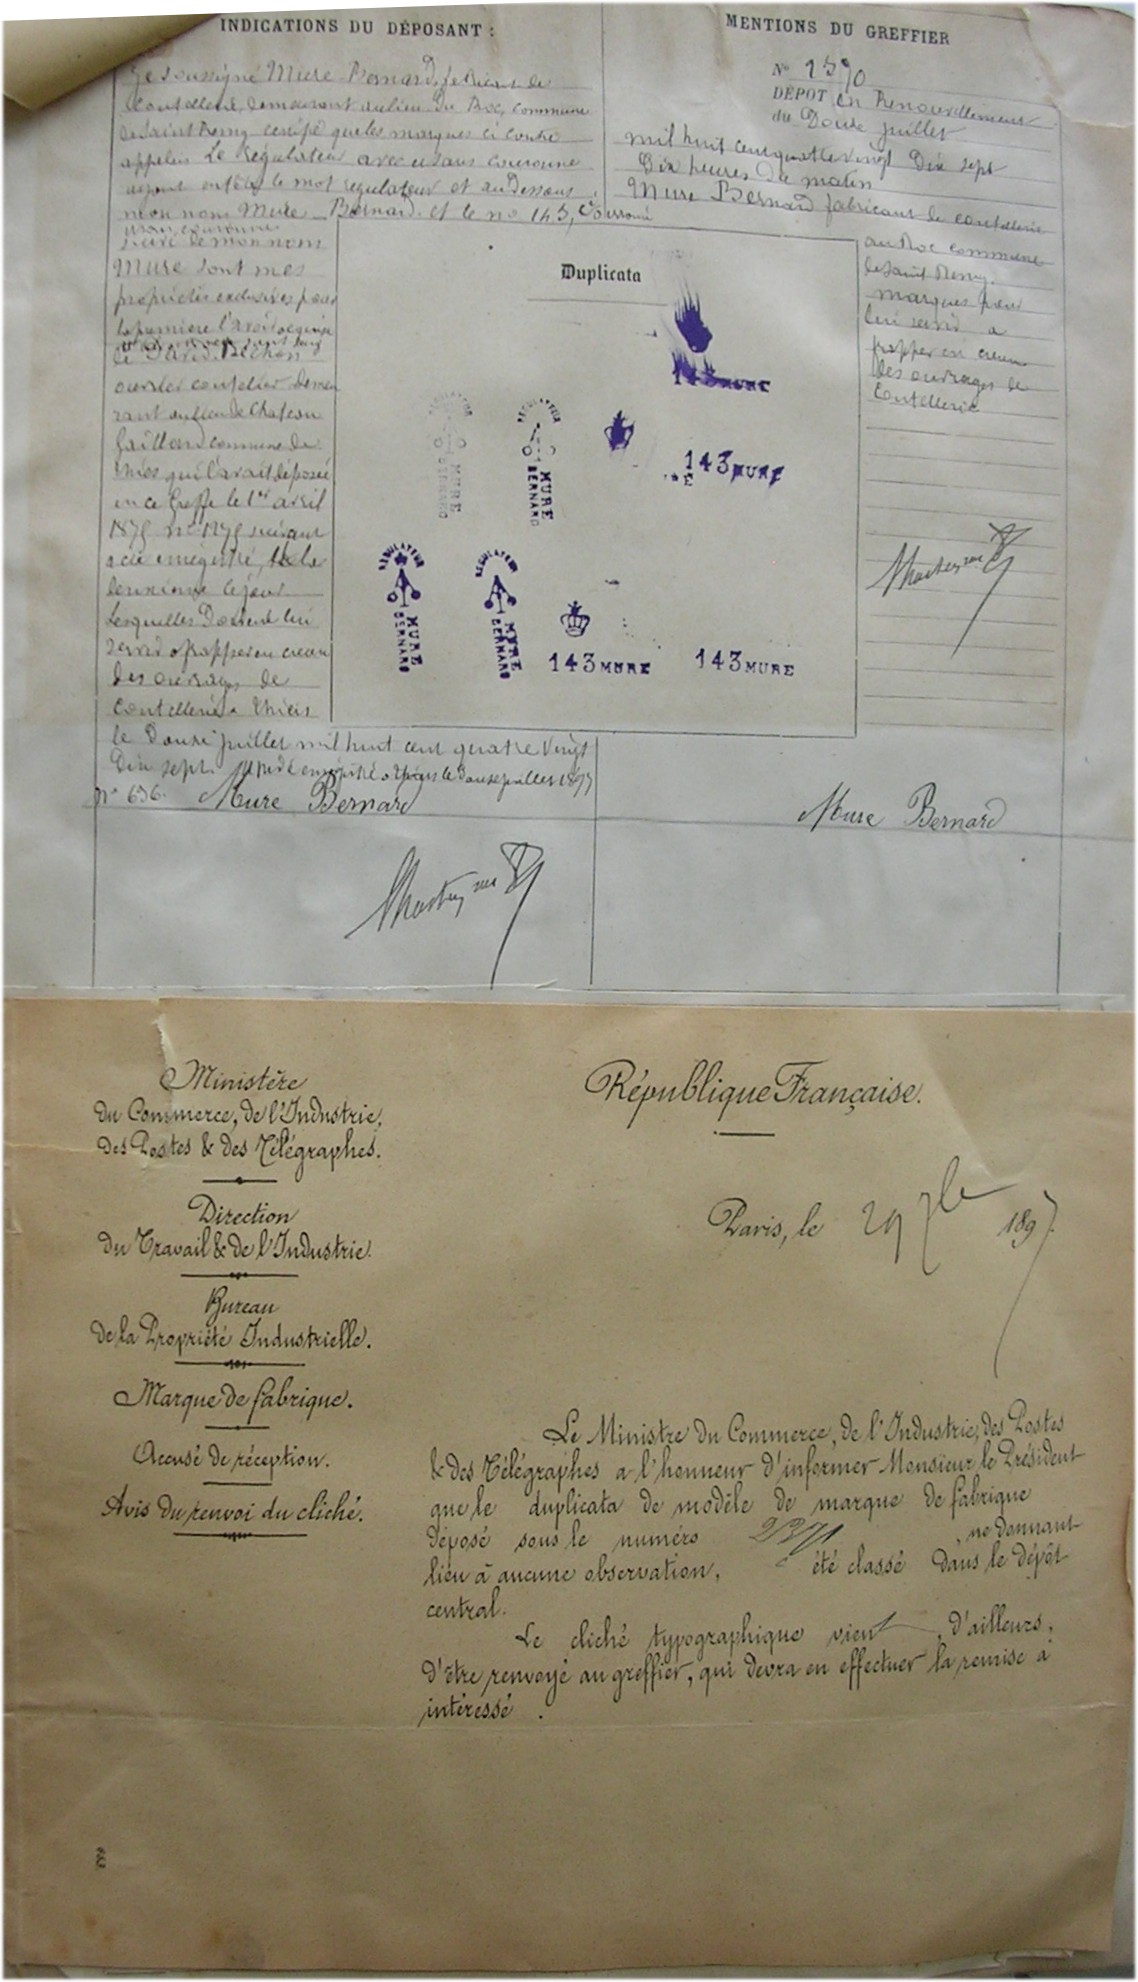 INDICATIONS DU DÉPOSANT :
Je soussigné Mure Bernard, fabricant de
Coutellerie, demeurant au lieu Du Roc, commune
de Saint Remy certifie que les marques ci contre
appelées Le Régulateur avec et sans Couronne
ayant en tête le mot regulateur et au Dessous
mon nom Mure Bernard et le no 143, Couronné
suivi de mon nom
Mure sont mes
propriétés exclusives pour
la première l'avoir acquise
ouvrier coutelier Demeu
rant au lieu de Chateau
Gaillard commune de
Thiers qui l'avait déposée
en ce Greffe le 1er avril
acte enregistré,
dernière ce jour
Lesquelles Doivent lui
servir a frapper en creux
des ouvrages de
Coutellerie Thiers
le Douze juillet mil huit cent quatre vingt
Dix sept enregistré a Thiers le Douze juillet 1897
no 636. Mure Bernard
MENTIONS DU GREFFIER
No 2370
DÉPÔT en Renouvellement
du Douze juillet
mil huit cent quatre vingt Dix sept
Dix heures du matin
Mure Bernard fabricant de coutellerie
au Roc commune
de Saint Remy.
marques pour
lui servir a
frapper en creux
des ouvrages de
Coutellerie
Mure Bernard
Duplicata
143 MURE
REGULATEUR
MURE
BERNARD
REGULATEUR
MURE
BERNARD
143 MURE
REGULATEUR
MURE
BERNARD
REGULATEUR
MURE
BERNARD
143 MURE
143 MURE
Ministère
du Commerce, de l'Industrie,
des Postes & des Télégraphes.
Direction
du Travail & de l'Industrie.
Bureau
de la Propriété Industrielle.
Marque de fabrique.
Accusé de réception.
Avis du renvoi du cliché.
République Française.
Paris, le 29 7bre 1897.
Le Ministre du Commerce, de l'Industrie, des Postes
& des Télégraphes a l'honneur d'informer Monsieur le Président
que le duplicata de modèle de marque de fabrique
déposé sous le numéro 2371, ne donnant
lieu à aucune observation, été classé dans le dépôt
central.
Le cliché typographique vient, d'ailleurs,
d'être renvoyé au greffier, qui devra en effectuer la remise à
intéressé.